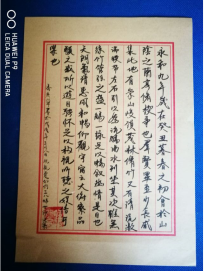 永和九年歲在癸丑暮春之初會於會稽山
陰之蘭亭脩禊事也羣賢畢至少長咸
集此地有崇山峻嶺茂林脩竹又有清流激
湍映帶左右引以為流觴曲水列坐其次雖無
絲竹管弦之盛一觴一詠亦足以暢敘幽情是日也
天朗氣清惠風和暢仰觀宇宙之大俯察品
類之盛所以遊目騁懷足以極視聽之娛信可
樂也
HUAWEI P9
LEICA DUAL CAMERA